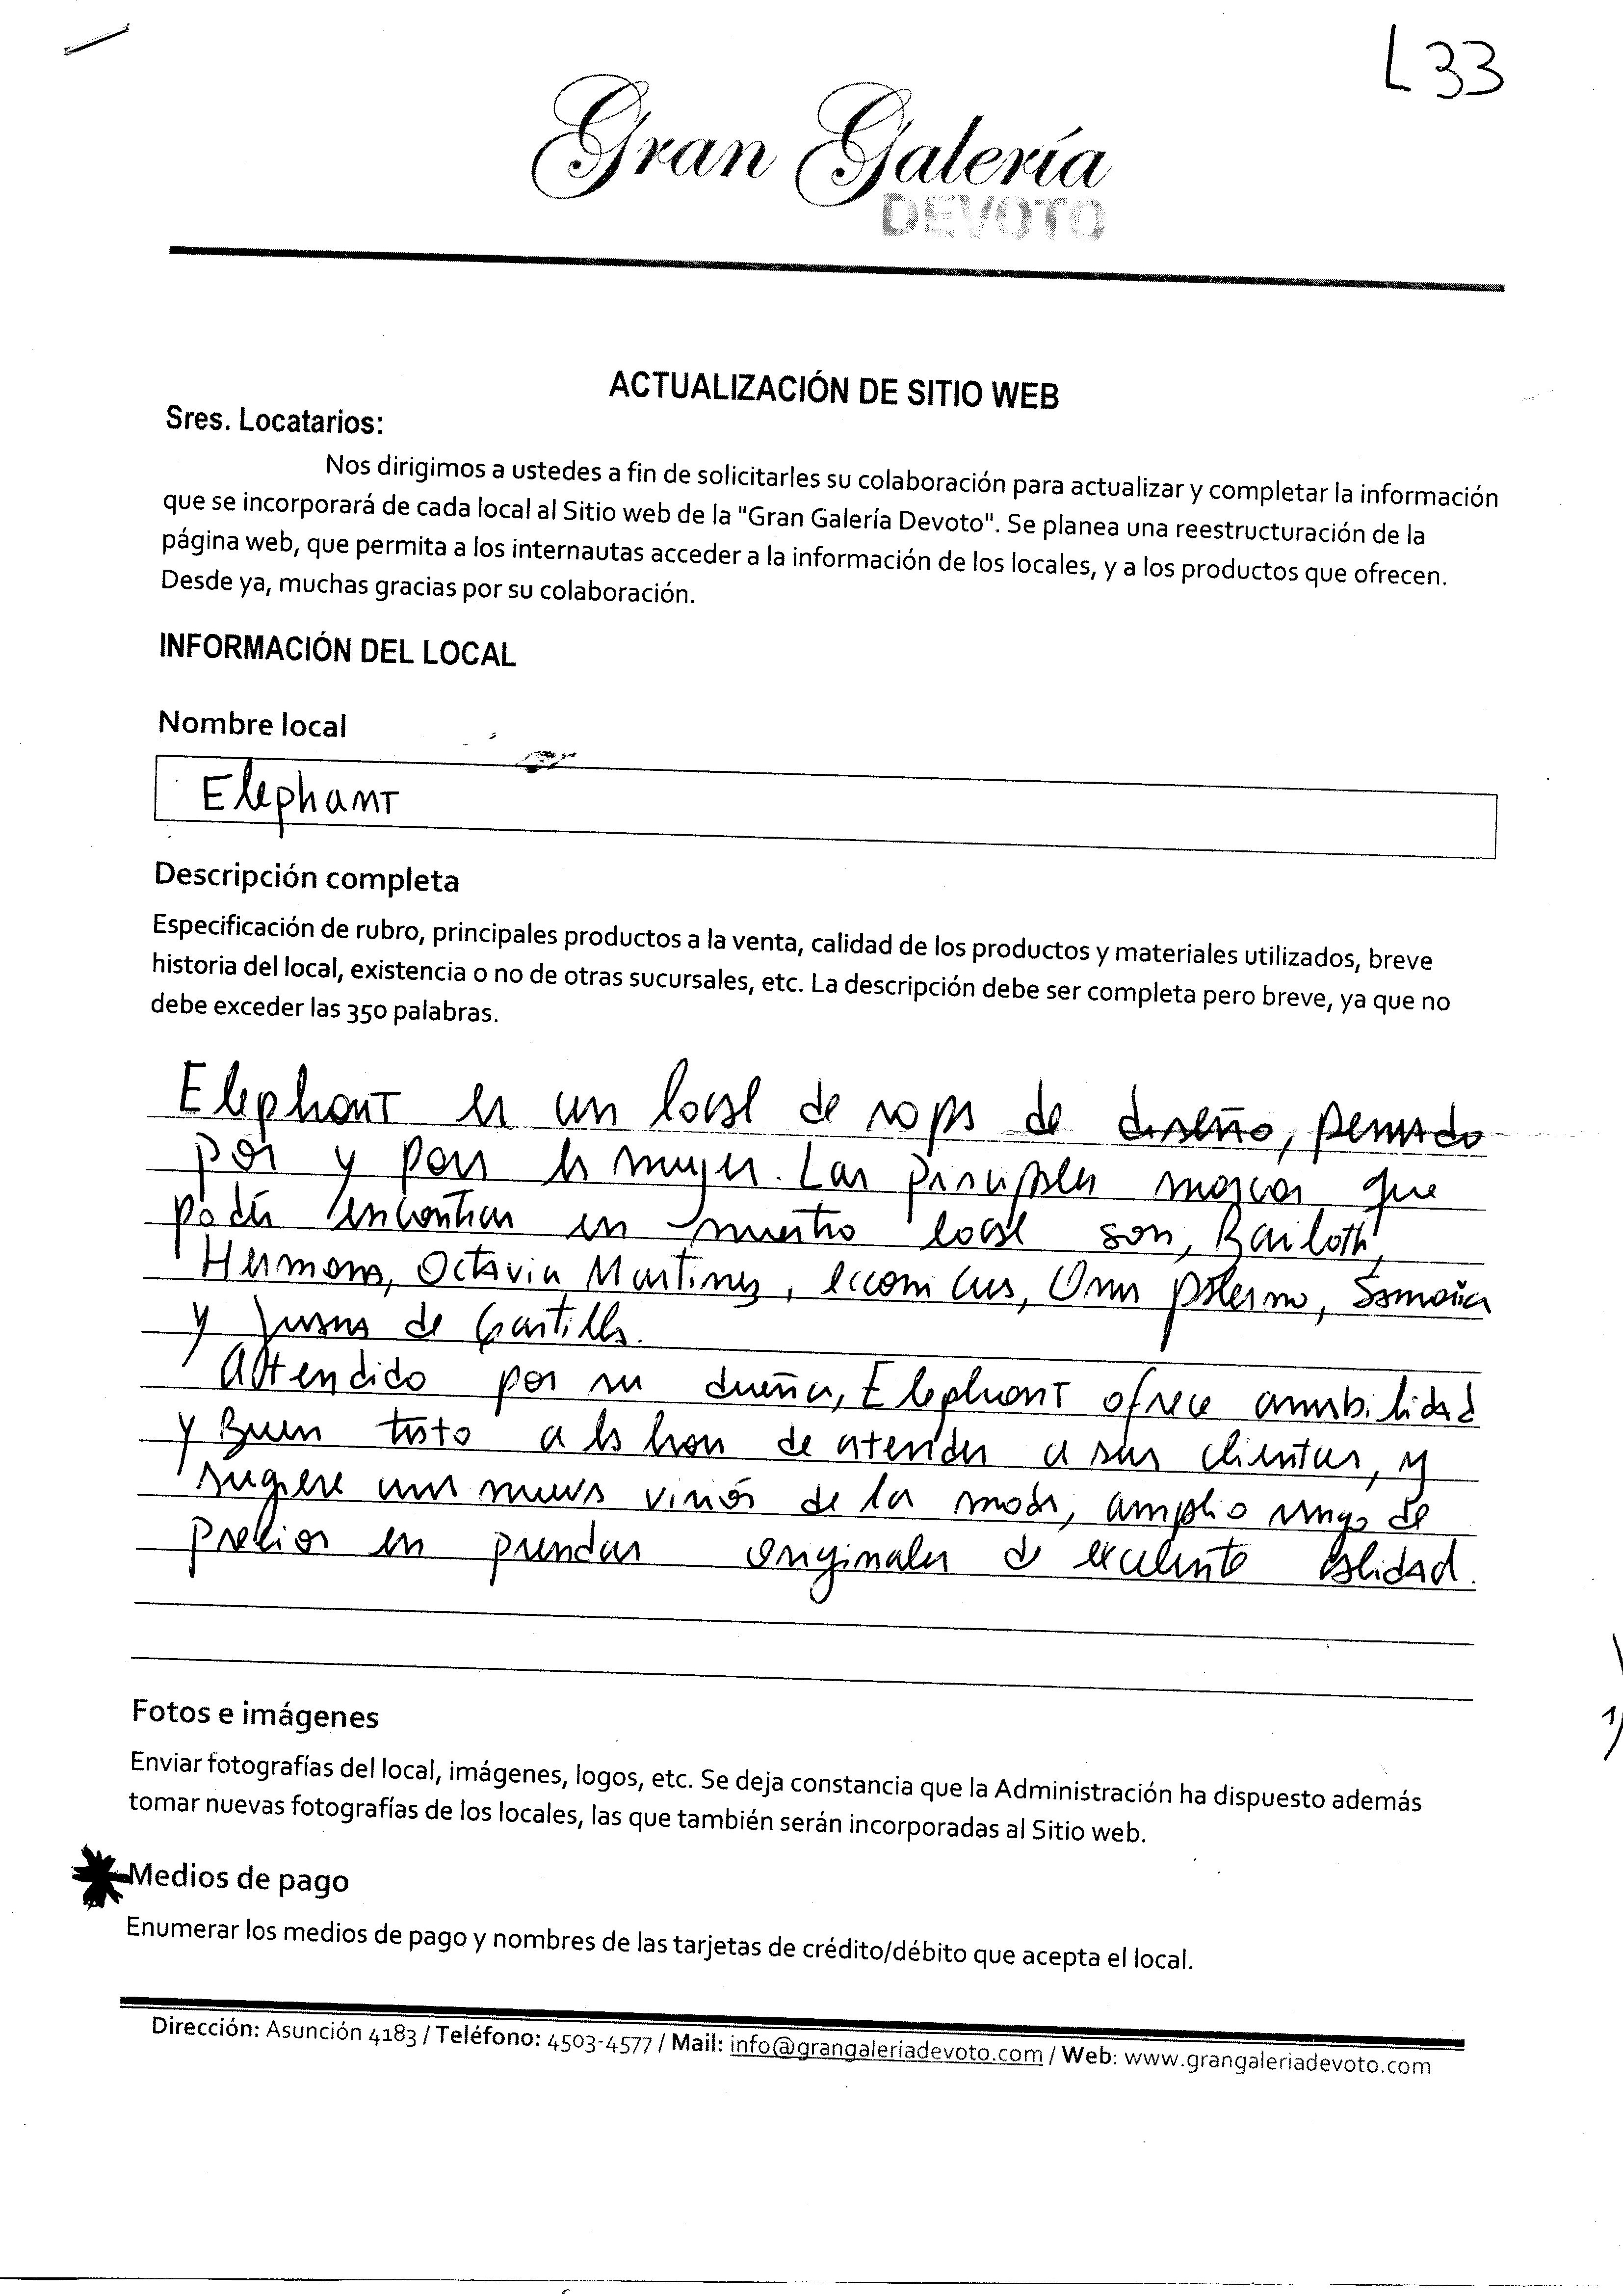 L 33
Gran Galería
DEVOTO
ACTUALIZACIÓN DE SITIO WEB
Sres. Locatarios:
Nos dirigimos a ustedes a fin de solicitarles su colaboración para actualizar y completar la información
que se incorporará de cada local al Sitio web de la "Gran Galería Devoto". Se planea una reestructuración de la
página web, que permita a los internautas acceder a la información de los locales, y a los productos que ofrecen.
Desde ya, muchas gracias por su colaboración.
INFORMACIÓN DEL LOCAL
Nombre local
Elephant
Descripción completa
Especificación de rubro, principales productos a la venta, calidad de los productos y materiales utilizados, breve
historia del local, existencia o no de otras sucursales, etc. La descripción debe ser completa pero breve, ya que no
debe exceder las 350 palabras.
Elephant es un local de ropa de diseño, pensado
por y para la mujer. Las principales marcas que
podés encontrar en nuestro local son, Bailoth,
Hermana, Octavia Martinez, Una palermo,
y Juana de Castilla.
Attendido por su dueña, Elephant ofrece amabilidad
y Buen trato a la hora de atender a sus clientas, y
sugiere una nueva visión de la moda, amplio rango de
precios en prendas originales de excelente calidad.
Fotos e imágenes
Enviar fotografías del local, imágenes, logos, etc. Se deja constancia que la Administración ha dispuesto además
tomar nuevas fotografías de los locales, las que también serán incorporadas al Sitio web.
Medios de pago
Enumerar los medios de pago y nombres de las tarjetas de crédito/débito que acepta el local.
Dirección: Asunción 4183 / Teléfono: 4503-4577 / Mail: info@grangaleriadevoto.com / Web: www.grangaleriadevoto.com